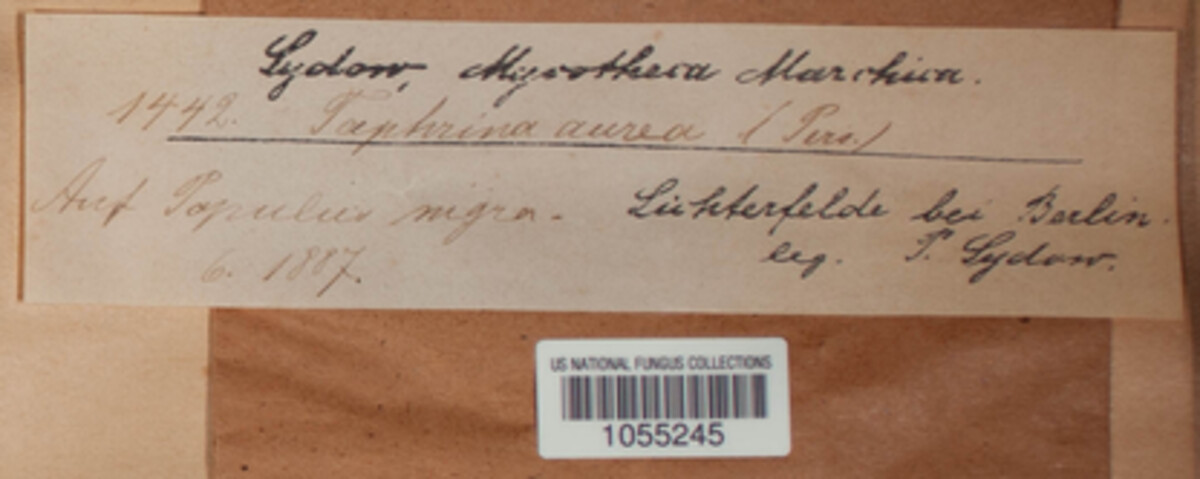 Sydow, Mycotheca Marchica.
1442. Taphrina aurea (Pers.)
Auf Populus nigra.
6. 1887.
Lichterfelde bei Berlin.
leg. P. Sydow.
US NATIONAL FUNGUS COLLECTIONS
1055245